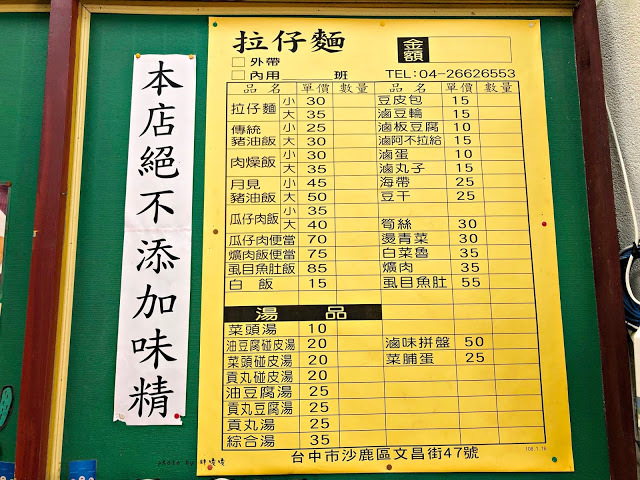 本店絕不添加味精
拉仔麵
金額
外帶
內用 班 TEL:04-26626553
品名 單價 數量 品名 單價 數量
拉仔麵 小 30
大 35
傳統豬油飯 小 25
大 30
肉燥飯 小 30
大 35
月見豬油飯 小 45
大 50
瓜仔肉飯 小 35
大 40
瓜仔肉便當 70
爌肉飯便當 75
虱目魚肚飯 85
白飯 15
豆皮包 15
滷豆輪 15
滷板豆腐 10
滷阿不拉給 15
滷蛋 10
滷丸子 15
海帶 25
豆干 25
筍絲 30
燙青菜 30
白菜魯 35
爌肉 35
虱目魚肚 55
湯品
菜頭湯 10
油豆腐碰皮湯 20
菜頭碰皮湯 20
貢丸碰皮湯 20
油豆腐湯 25
貢丸豆腐湯 25
貢丸湯 25
綜合湯 35
滷味拼盤 50
菜脯蛋 25
台中市沙鹿區文昌街47號